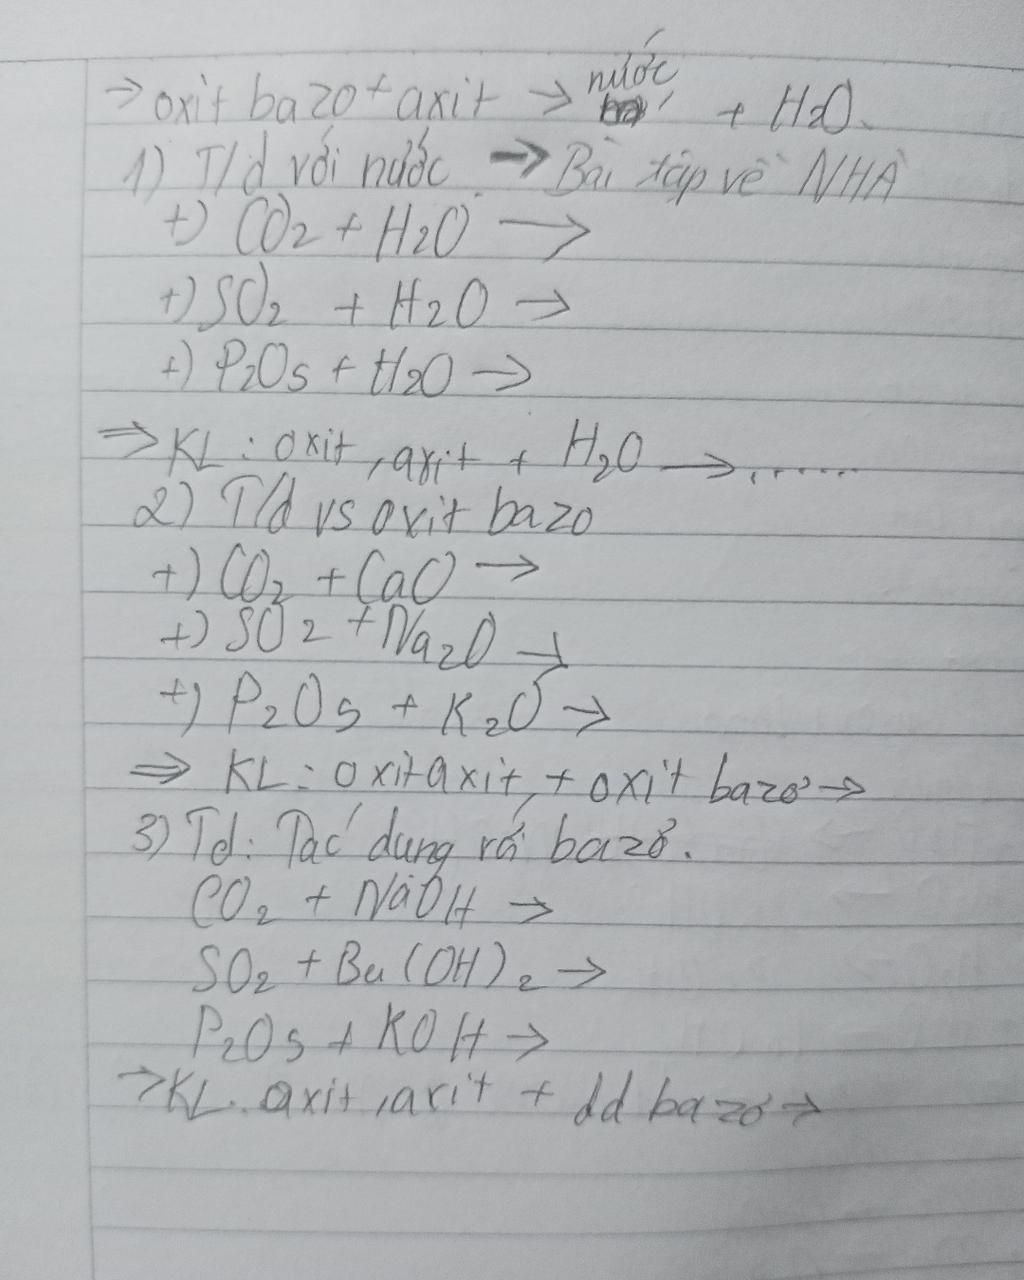 → oxit bazo + axit → nước + H2O.
1) T/d với nước → Bài tập về NHÀ
+) CO2 + H2O →
+) SO2 + H2O →
+) P2O5 + H2O →
⇒ KL : oxit, axit + H2O → ......
2) T/d vs oxit bazo
+) CO2 + CaO →
+) SO2 + Na2O →
+) P2O5 + K2O →
⇒ KL : oxit axit, + oxit bazơ →
3) Td: Tác dụng rớ bazơ.
CO2 + NaOH →
SO2 + Ba(OH)2 →
P2O5 + KOH →
→ KL. oxit, axit + dd bazơ →